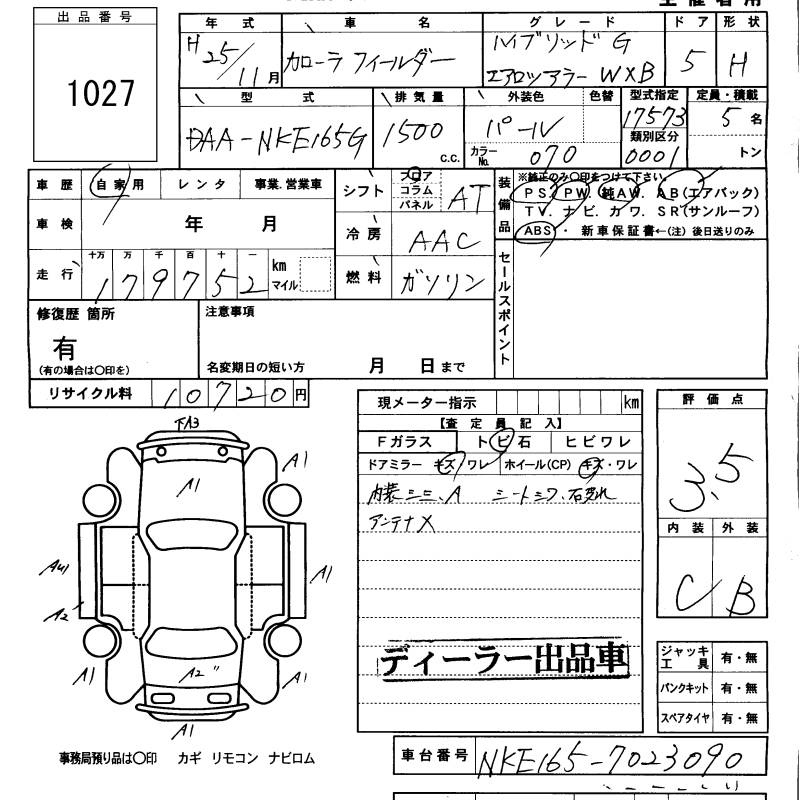 出品番号
1027
年式 車名 グレード ドア 形状
H25/11月 カローラ フィールダー ハイブリッド G エアロツアラー WXB 5 H
型式 排気量 外装色 色替 型式指定 定員・積載
DAA-NKE165G 1500 c.c. パール 17573 5名
カラーNo. 070 類別区分 0001 トン
車歴 自家用 レンタ 事業.営業車
車検 年 月
走行 十万 万 千 百 十 一 km マイル
179752
シフト フロア コラム パネル AT
冷房 AAC
燃料 ガソリン
装備品 ※純正のみ〇印をつけて下さい。
PS. PW. 純AW. AB(エアバック)
TV. ナビ. カワ. SR(サンルーフ)
ABS・ 新車保証書←(注) 後日送りのみ
セールスポイント
修復歴 箇所
有
(有の場合は〇印を)
注意事項
名変期日の短い方 月 日まで
リサイクル料 10720円
現メーター指示 km
【査定員記入】
Fガラス トビ石 ヒビワレ
ドアミラー キズ/ワレ ホイール(CP) キズ・ワレ
内装シミ、A シートシワ、
アンテナX
評価点
3.5
内装 外装
C B
下A3
A1
A1
A1
A2
A1
A2"
A1
A1
A1
ディーラー出品車
ジャッキ工具 有・無
パンクキット 有・無
スペアタイヤ 有・無
車台番号 NKE165-7023090
事務局預り品は〇印 カギ リモコン ナビロム